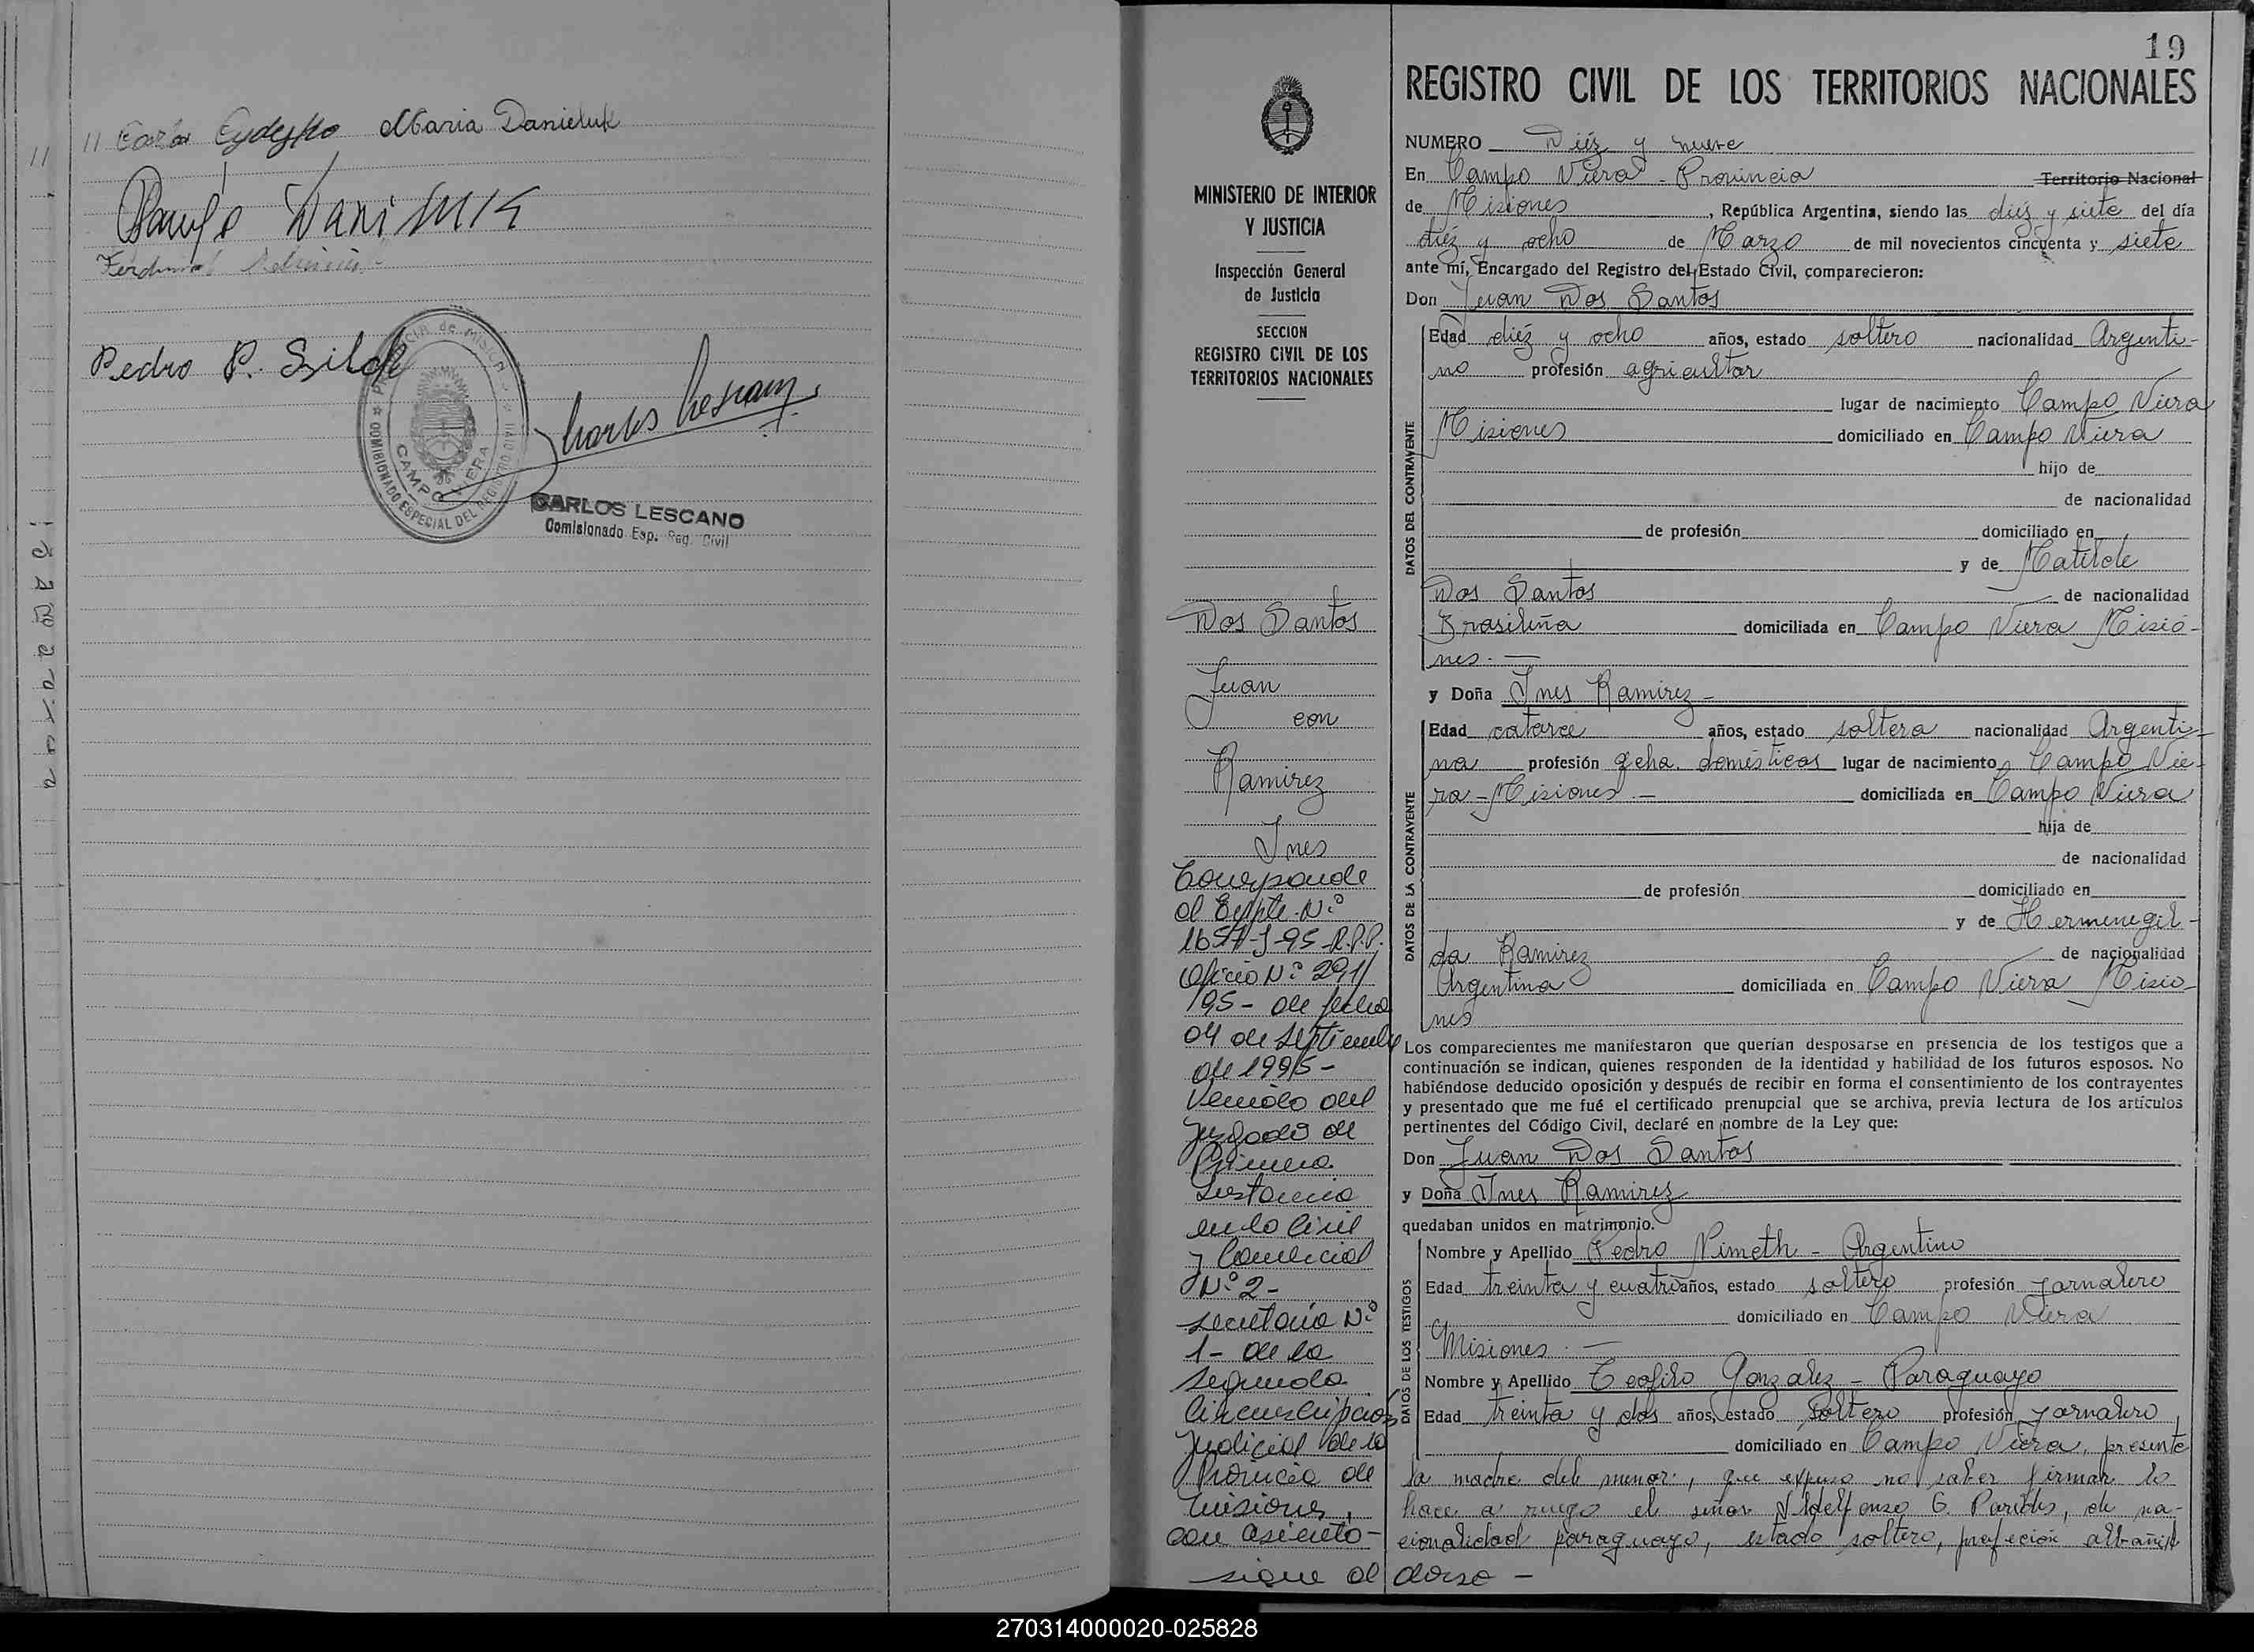 María Danieluk
Pedro P.
PROVINCIA de MISIONES
COMISIONADO ESPECIAL DEL REGISTRO CIVIL
CAMPO VIERA
CARLOS LESCANO
Comisionado Esp. Reg. Civil
19
REGISTRO CIVIL DE LOS TERRITORIOS NACIONALES
MINISTERIO DE INTERIOR
Y JUSTICIA
Inspección General
de Justicia
SECCION
REGISTRO CIVIL DE LOS
TERRITORIOS NACIONALES
Dos Santos
Juan
con
Ramirez
Ines
Corresponde
al Expte. Nº
1657-J-95-R.P.P.
Oficio Nº 291/
95- de fecha
04 de septiembre
de 1995-
Venido del
Juzgado de
Primera
Instancia
en lo Civil
y Comercial
Nº 2-
Secretaría Nº
1- de la
Segunda
Circunscripción
Judicial de la
Provincia de
Misiones,
con asiento-
sigue al dorso-
NUMERO Diéz y nueve
En Campo Viera - Provincia Territorio Nacional
de Misiones, República Argentina, siendo las diéz y siete del día
diéz y ocho de Marzo de mil novecientos cincuenta y siete
ante mí, Encargado del Registro del Estado Civil, comparecieron:
Don Juan Dos Santos
DATOS DEL CONTRAYENTE
Edad diéz y ocho años, estado soltero nacionalidad Argenti-
no profesión agricultor
lugar de nacimiento Campo Viera
Misiones domiciliado en Campo Viera
hijo de
de nacionalidad
de profesión domiciliado en
y de Matilde
Dos Santos de nacionalidad
Brasileña domiciliada en Campo Viera Misio-
nes.-
y Doña Ines Ramirez-
DATOS DE LA CONTRAYENTE
Edad catorce años, estado soltera nacionalidad Argenti-
na profesión qeha. domésticos lugar de nacimiento Campo Vie-
ra - Misiones.- domiciliada en Campo Viera
hija de
de nacionalidad
de profesión domiciliado en
y de Hermenegil-
da Ramirez de nacionalidad
Argentina domiciliada en Campo Viera Misio-
nes
Los comparecientes me manifestaron que querían desposarse en presencia de los testigos que a
continuación se indican, quienes responden de la identidad y habilidad de los futuros esposos. No
habiéndose deducido oposición y después de recibir en forma el consentimiento de los contrayentes
y presentado que me fué el certificado prenupcial que se archiva, previa lectura de los artículos
pertinentes del Código Civil, declaré en nombre de la Ley que:
Don Juan Dos Santos
y Doña Ines Ramirez
quedaban unidos en matrimonio.
DATOS DE LOS TESTIGOS
Nombre y Apellido Pedro Nimeth - Argentino
Edad treinta y cuatro años, estado soltero profesión jornalero
domiciliado en Campo Viera
Misiones.-
Nombre y Apellido Teofilo Gonzalez - Paraguayo
Edad treinta y dos años, estado soltero profesión jornalero,
domiciliado en Campo Viera, presente
la madre del menor, que expuso no saber firmar lo
hace a ruego el señor Ildelfonso G. Paredes, de na-
cionalidad paraguayo, estado soltero, profeción albañil
270314000020-025828